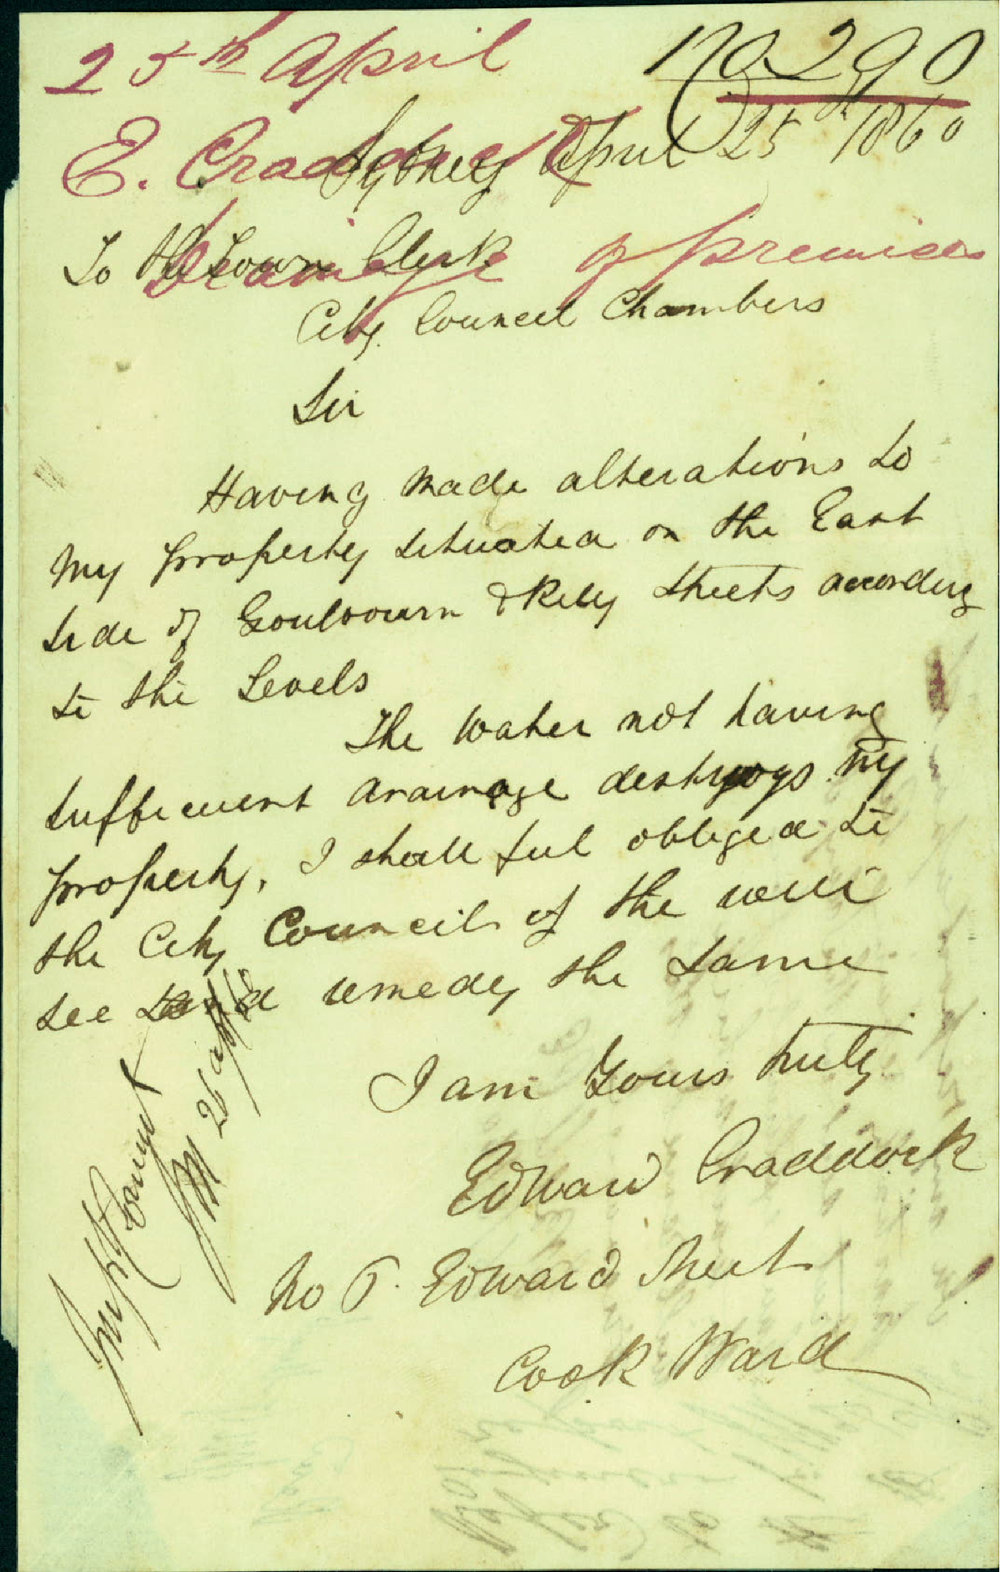 25th April
No 290
E. Craddock
Sydney April 25th 1860
Drainage of premises
To the Town Clerk
City Council Chambers
Sir
Having made alterations to
my property situated on the East
side of Goulbourn & Rily streets according
to the Levels
The water not having
suffecient drainage destroys my
property, I shall feel obliged to
the City Council of the will
see and remedy the same
I am Yours truly
Edward Craddock
No 5. Edward Street
Cook Ward
26 apl